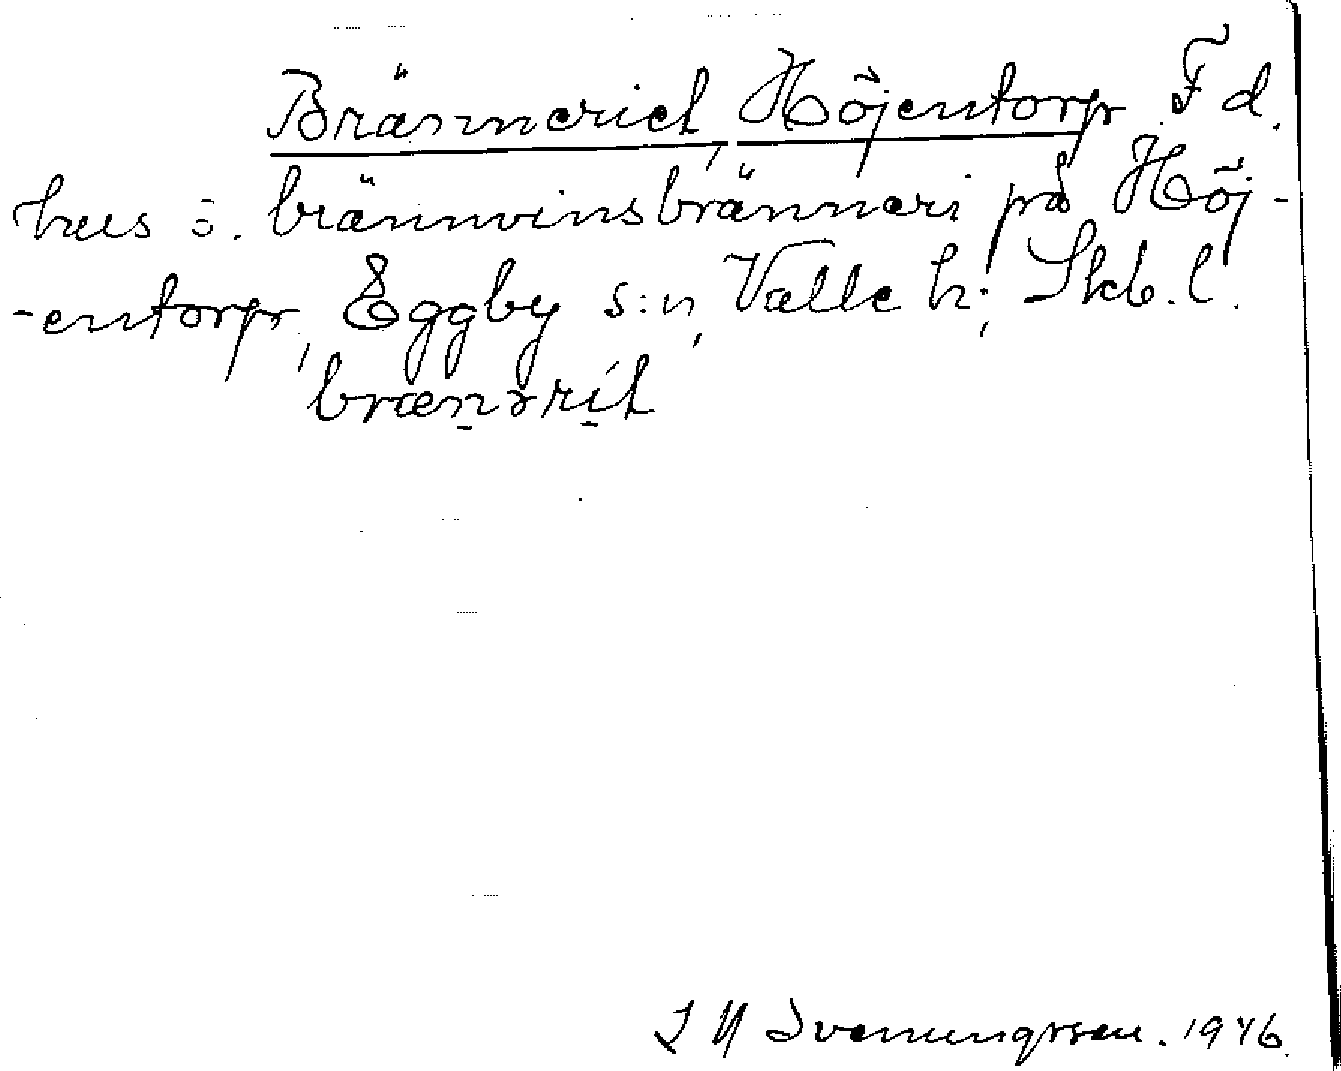 Bränneriet, Höjentorp F d.
hus o. brännvinsbränneri på Höj-
-entorp, Eggby s:n, Valle h; Skb. l.
brænəri̱t
S N Svenungsson. 1946.